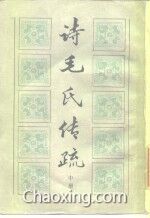 诗毛氏传疏
中册
Chaoxing.com